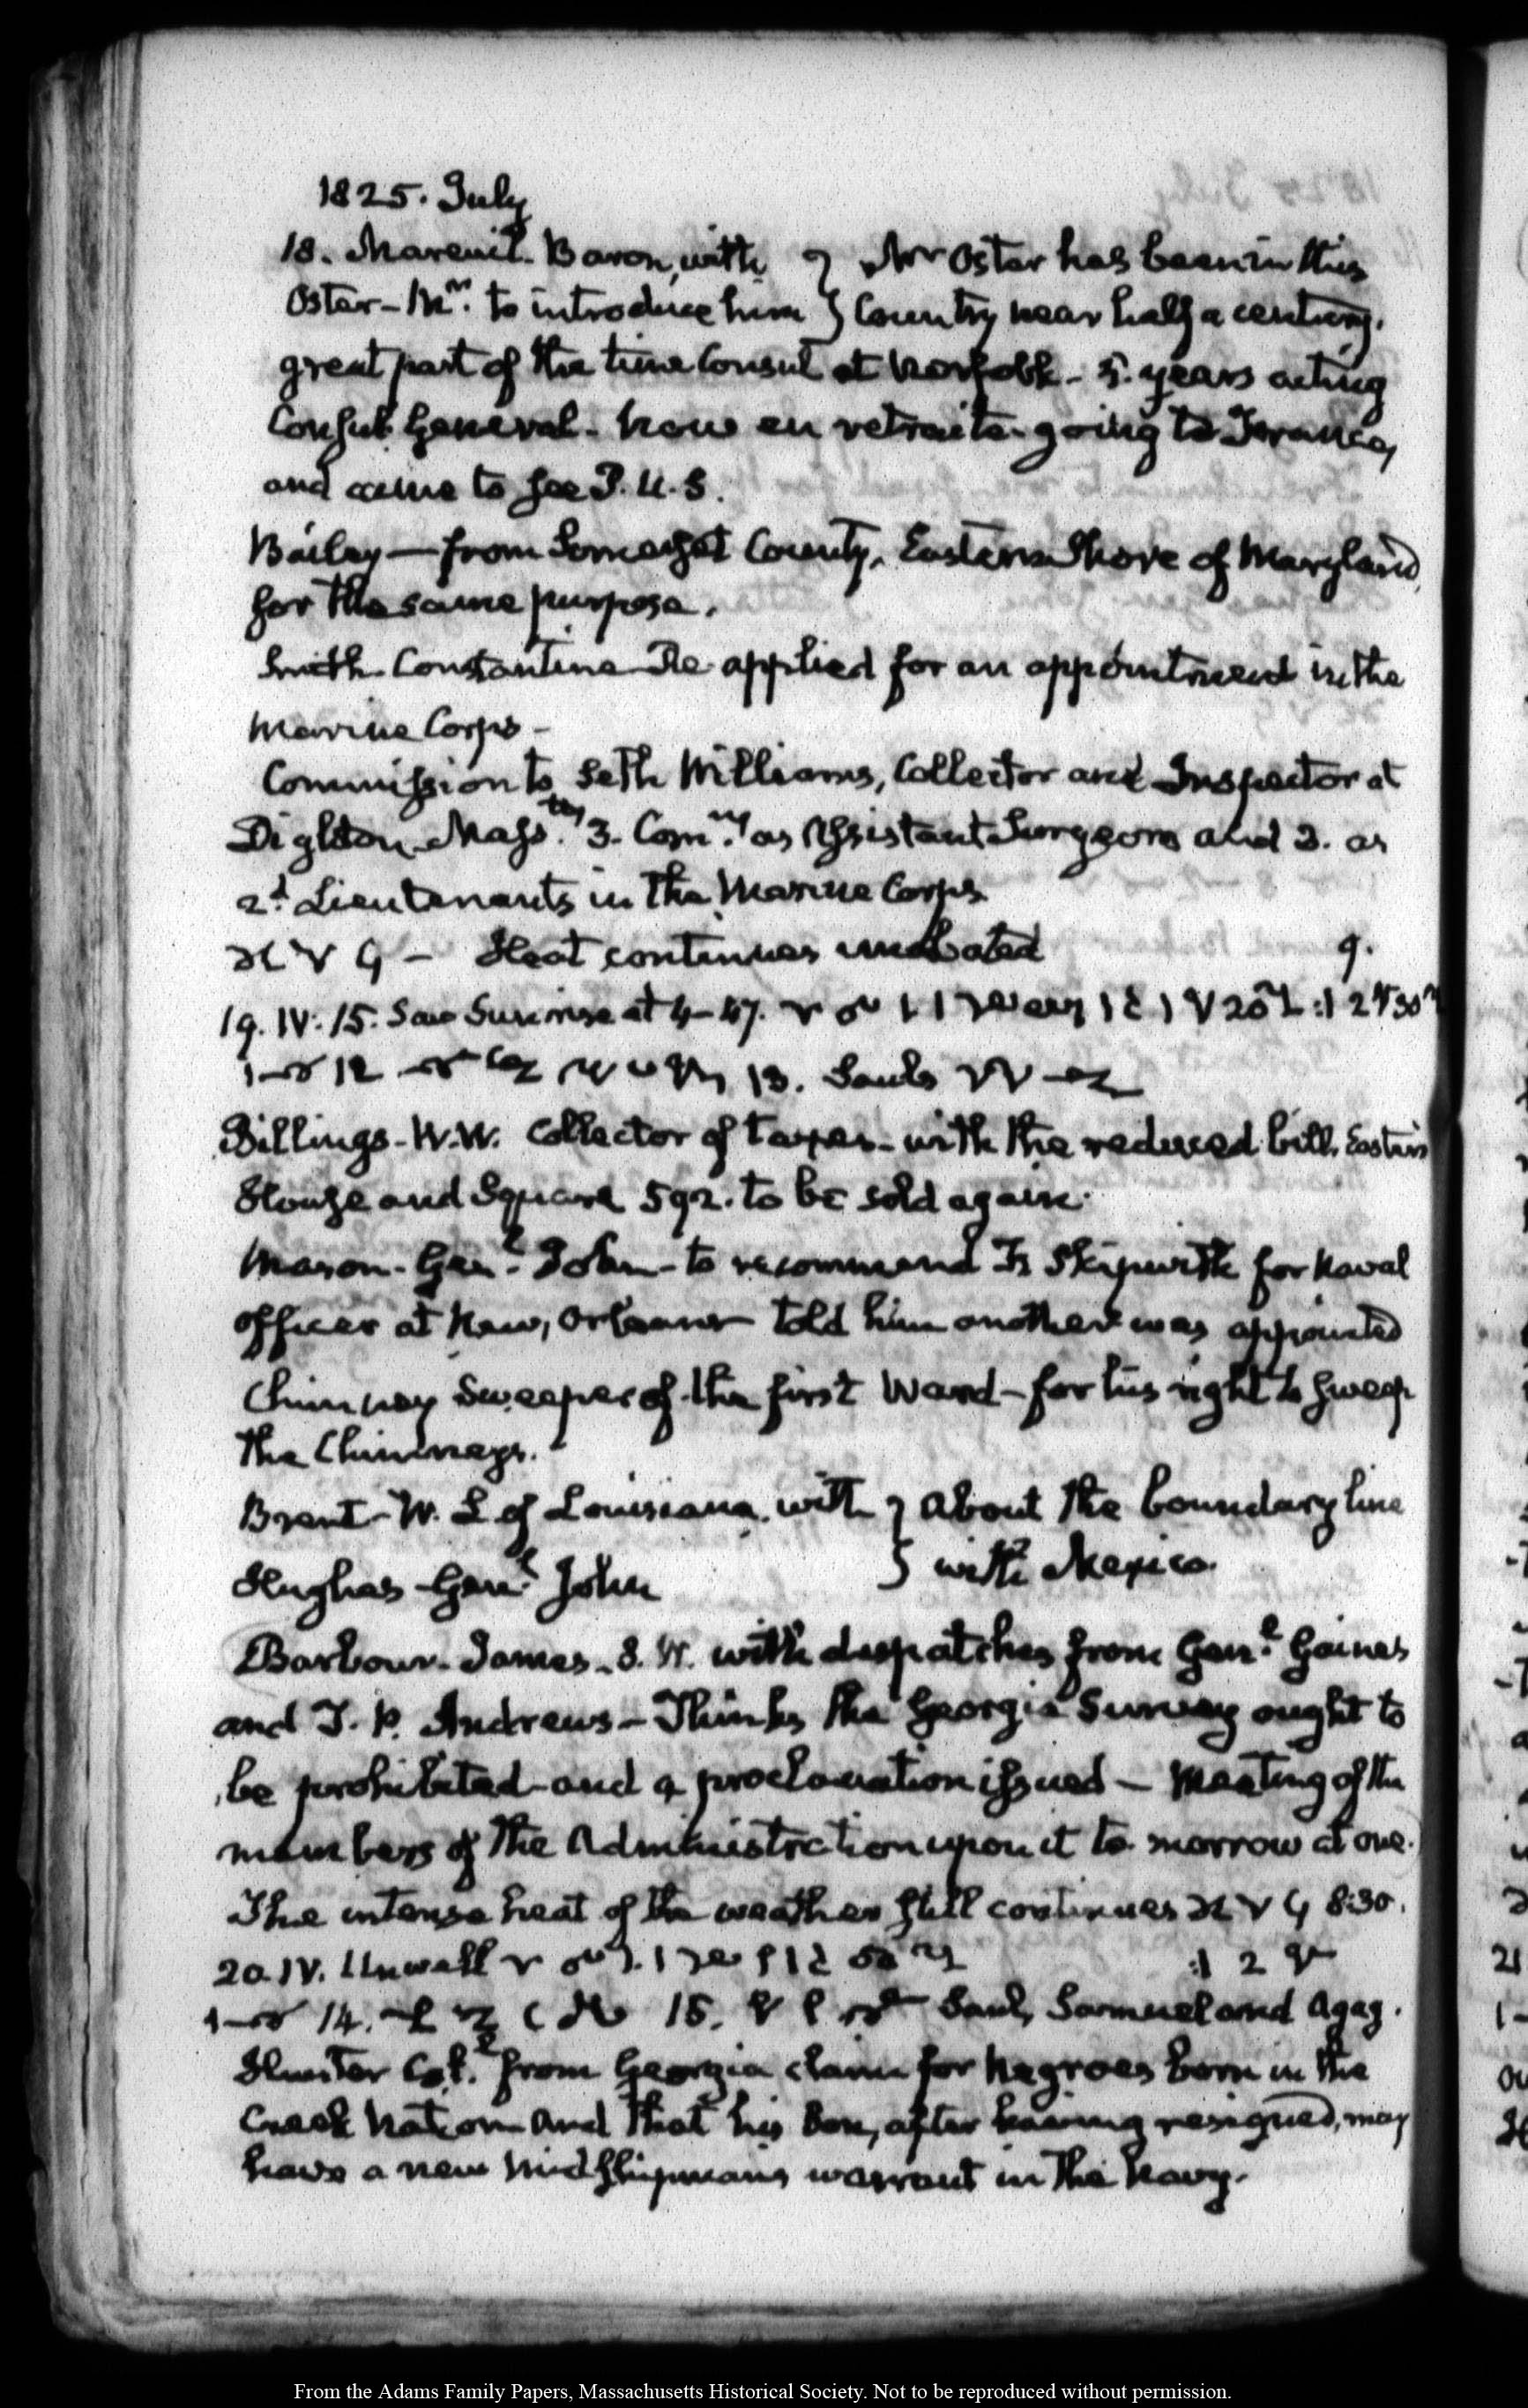 1825. July
18. Mareuil. Baron, with } Mr Oster has been in this
Oster - Mr. to introduce him } Country near half a century.
great part of the time Consul at Norfolk - 5. years acting
Consul General - now en retraite - going to France,
and came to see P. U. S.
Bailey — from Somerset County, Eastern Shore of Maryland
for the same purpose.
Smith Constantine He applied for an appointment in the
Marine Corps -
Commission to Seth Williams, Collector and Inspector at
Dighton Massts. 3. Comns. as Assistant Surgeons and 3. as
2d. Lieutenants in the Marine Corps
Heat continues unabated 9.
19. IV: 15. Saw Sun rise at 4-47.
12 13. Sauls
Billings - W. W. Collector of taxes - with the reduced bill.
House and Square 592. to be sold again.
Mason - Genl. John - to recommend Skipwith for Naval
officer at New, Orleans told him another was appointed
Chimney Sweeper of the first Ward - for his right to sweep
the Chimneys.
Brent - W. L of Louisiana. with } about the boundary line
Hughes - Genl. John } with Mexico.
Barbour - James - S. W. with dispatches from Genl. Gaines
and T. P. Andrews - Thinks the Georgia Survey ought to
be prohibited - and a proclamation issued - Meeting of the
members of the Administration upon it to morrow at one.
The intense heat of the weather still continues 8:30.
20. IV. Unwell
14. 15. Saul, Samuel and Agag.
Hunter Coll. from Georgia claim for Negroes born in the
Creek Nation - and that his Son, after having resigned, may
have a new Midshipmans warrant in the Navy.
From the Adams Family Papers, Massachusetts Historical Society. Not to be reproduced without permission.